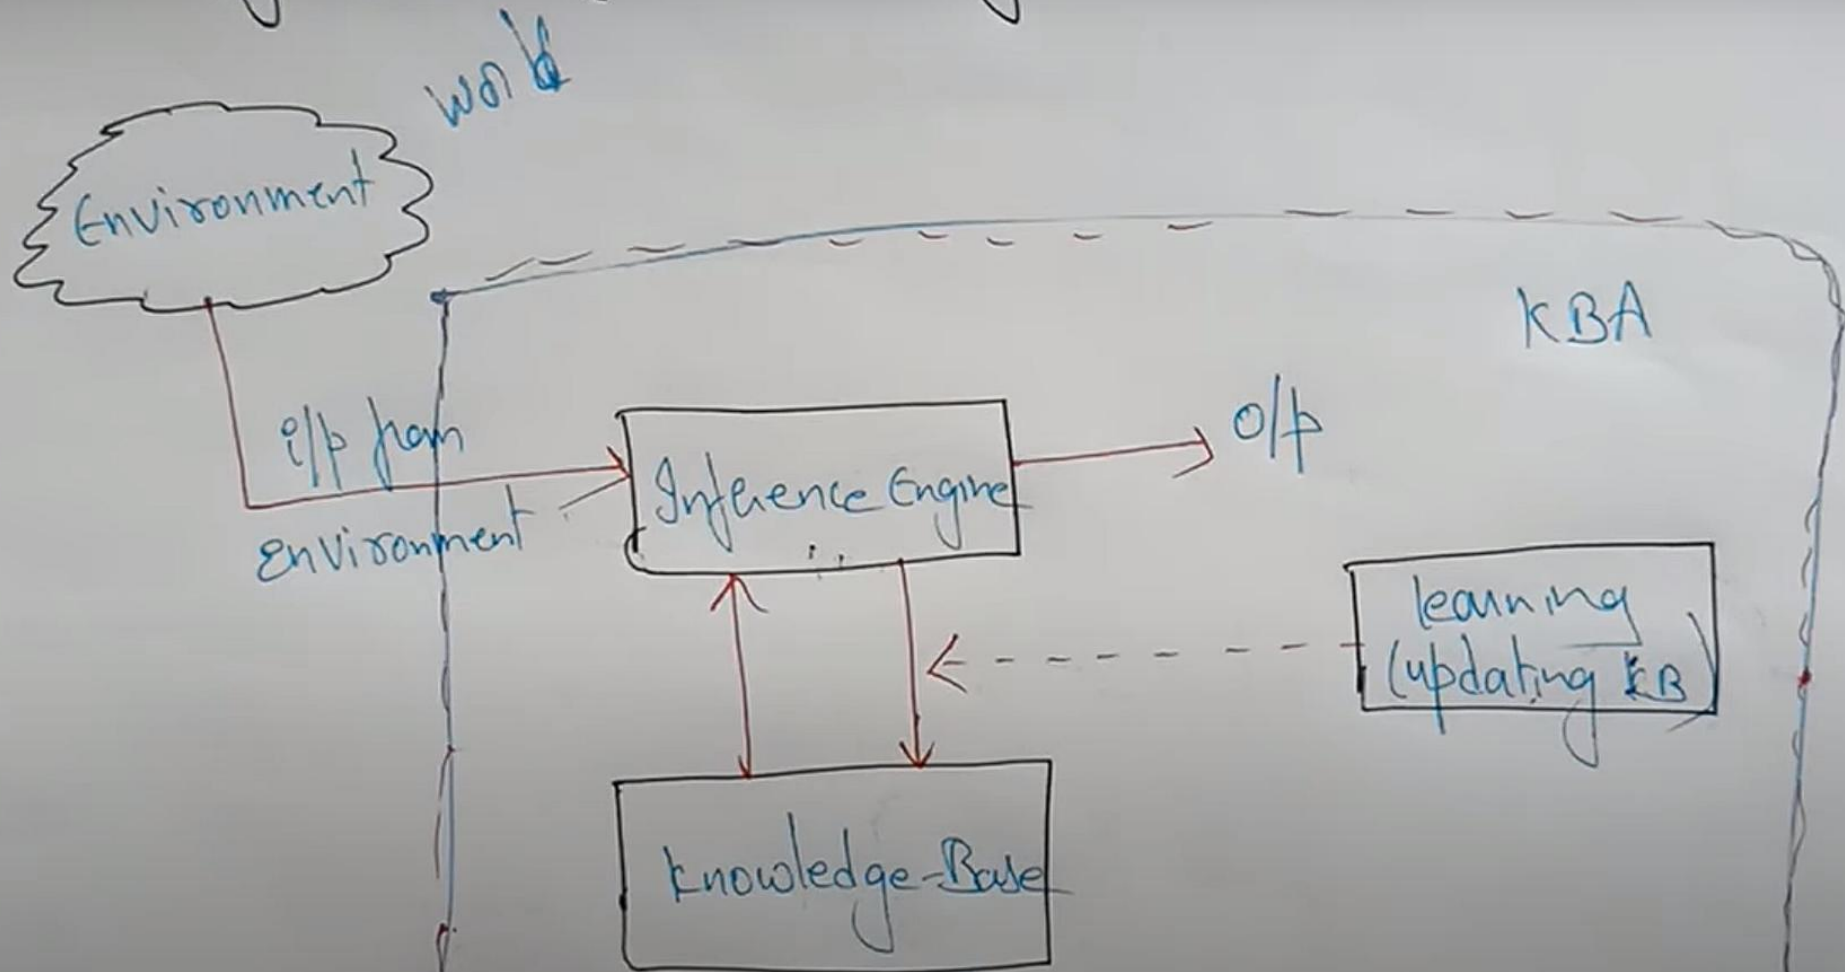 World
Environment
KBA
i/p from
environment
Inference Engine
o/p
learning
(updating KB)
Knowledge-Base